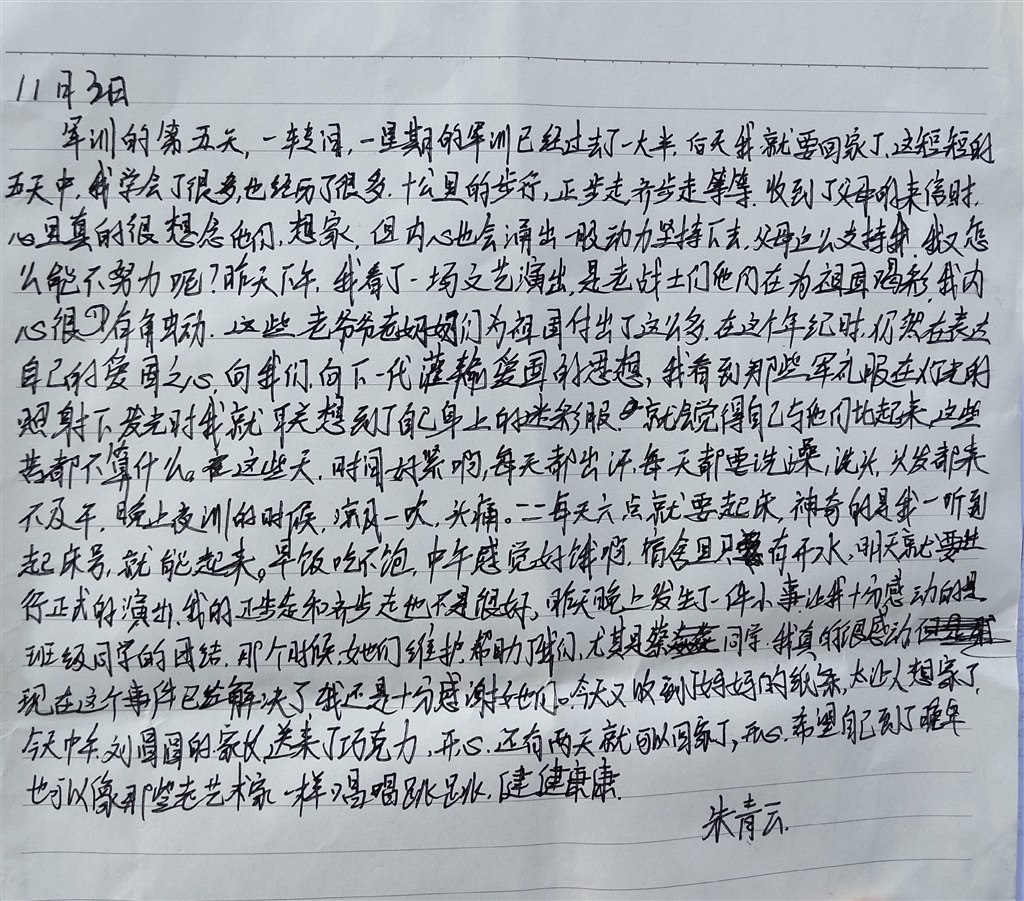 11月3日
军训的第五天,一转间,一星期的军训已经过去了一大半.后天我就要回家了,这短短的
五天中,我学会了很多,也经历了很多.十公里的步行,正步走,齐步走等等.收到了父母的来信时,
心里真的很想念他们,想家,但内心也会涌出一股动力坚持下去,父母这么支持我,我又怎
么能不努力呢?昨天下午,我看了一场文艺演出,是老战士们他们在为祖国喝彩,我内
心很有触动.这些老爷爷老奶奶们为祖国付出了这么多,在这个年纪时,仍然在表达
自己的爱国之心,向我们,向下一代灌输爱国的思想,我看到那些军礼服在灯光的
照射下发光时我就联想到了自己身上的迷彩服.就会觉得自己与他们比起来,这些
苦都不算什么。这些天,时间好紧啊,每天都出汗,每天都要洗澡,洗头,头发都来
不及干,晚上夜训的时候,凉风一吹,头痛。——每天六点就要起床,神奇的是我一听到
起床号,就能起来。早饭吃不饱,中午感觉好饿啊,宿舍里只有开水,明天就要进
行正式的演出,我的正步走和齐步走也不是很好,昨天晚上发生了一件小事让我十分感动的是
班级同学的团结,那个时候,她们维护,帮助了我们,尤其是蔡同学.我真的很感动
现在这个事件已经解决了我还是十分感谢她们。今天又收到了妈妈的纸条,太让人想家了,
今天中午,刘圆圆的家长送来了巧克力,开心.还有两天就可以回家了,开心.希望自己到了晚年
也可以像那些老艺术家一样唱唱跳跳.健健康康.
朱青云.